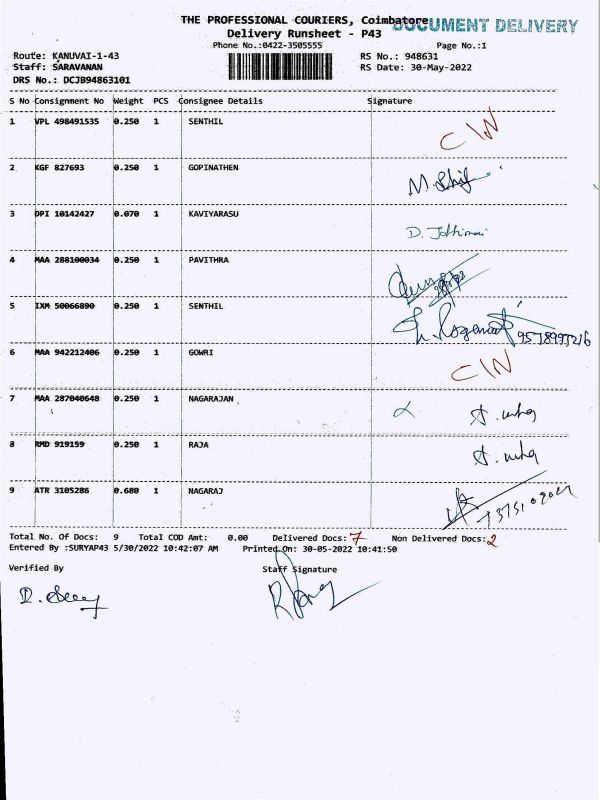 THE PROFESSIONAL COURIERS, Coimbatore
DOCUMENT DELIVERY
Delivery Runsheet - P43
Phone No.:0422-3505555
Page No.:1
Route: KANUVAI-1-43
RS No.: 948631
Staff: SARAVANAN
RS Date: 30-May-2022
DRS No.: DCJB94863101
S No Consignment No Weight PCS Consignee Details Signature
1 VPL 498491535 0.250 1 SENTHIL C/N
2 KGF 827693 0.250 1 GOPINATHEN
3 DPI 10142427 0.070 1 KAVIYARASU
4 MAA 288100034 0.250 1 PAVITHRA
5 IXM 50066890 0.250 1 SENTHIL
6 MAA 942212406 0.250 1 GOWRI C/N
7 MAA 287040648 0.250 1 NAGARAJAN
8 RMD 919159 0.250 1 RAJA
9 ATR 3105286 0.680 1 NAGARAJ
Total No. Of Docs: 9 Total COD Amt: 0.00 Delivered Docs: 7 Non Delivered Docs: 2
Entered By :SURYAP43 5/30/2022 10:42:07 AM Printed On: 30-05-2022 10:41:50
Verified By Staff Signature